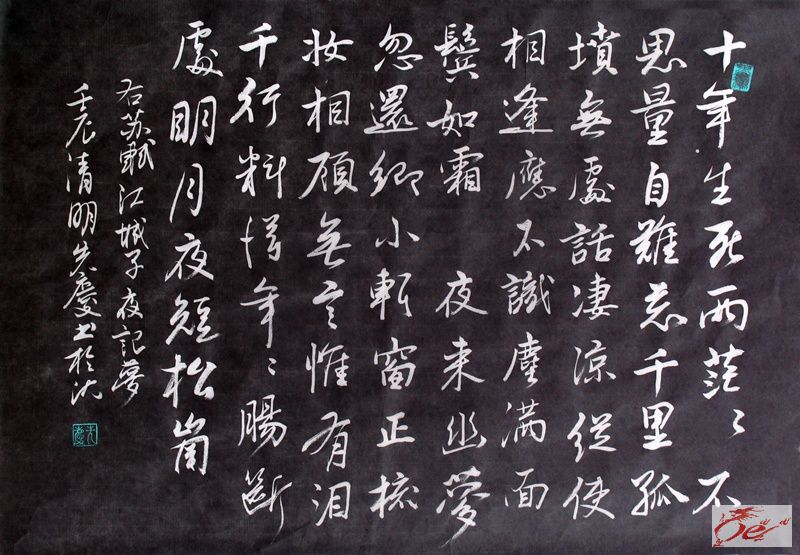 十年生死兩茫〻不
思量自難忘千里孤
墳無處話凄涼從使
相逢應不識塵滿面
鬢如霜 夜来幽夢
忽還鄉小軒窗正梳
妆相顧無言惟有泪
千行料得年〻腸斷
處明月夜短松崗
右苏軾江城子夜記夢
壬辰清明先慶书於沈